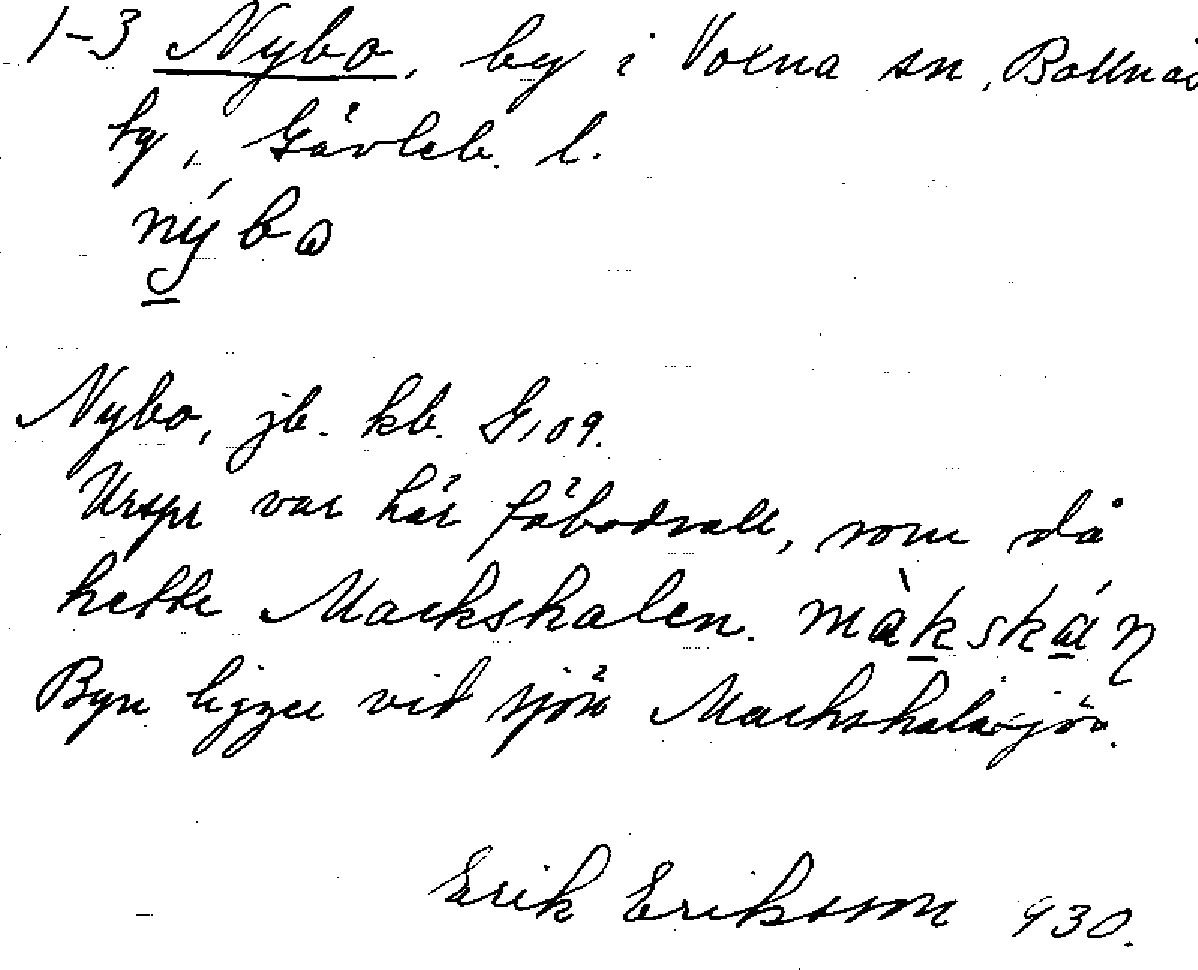 1-3 Nybo, by i Voxna sn, Bollnäs
tg, Gävleb. l.
nýbo
Nybo, jb. kb. G, 09.
Urspr var här fäbodvall, som då
hette Mackskalen. màkskán
Byn ligger vid sjön Mackskalssjön.
Erik Eriksson 930.